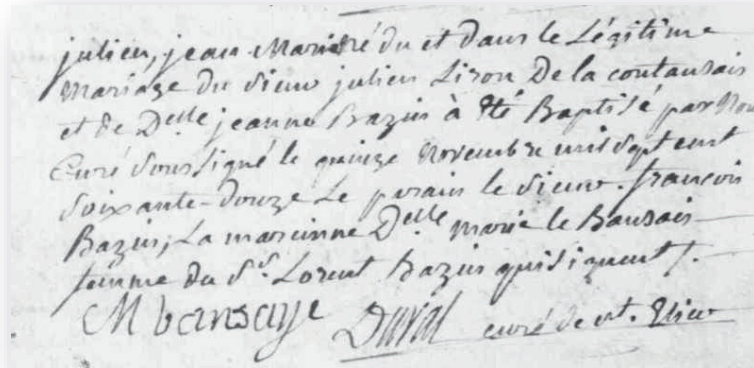 julien, jean Marie né du et dans le Légitime
mariage du sieur julien Liron De la contausais
et de Delle jeanne Bazin à Eté Baptisé par Nou
Curé soussigné le quinze Novembre mil sept cent
soixante-douze Le parain le sieur françois
Bazin; La marainne Delle marie le Bansais
femme du Sr Lorent Bazin qui signent /.
Duval curé de st.